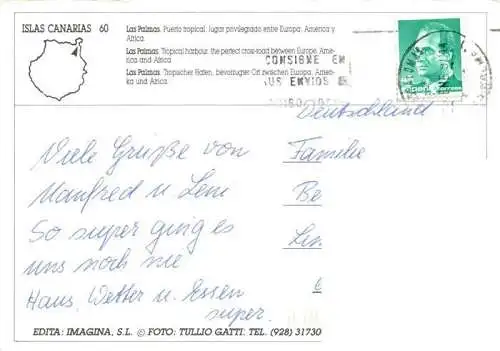 ISLAS CANARIAS 60
Las Palmas. Puerto tropical: lugar privilegiado entre Europa: America y
Africa.
Las Palmas. Tropical harbour: the perfect cross-road between Europe: Ame-
rica and Africa
Las Palmas. Tropischer Hafen, bevorzugter Ort zwischen Europa, Ame-
ka und Africa.
CONSIGNE EN
US ENVIOS
Deutschland
Viele Grüße von
Manfred u Leni
So super ging es
uns noch nie
Haus, Wetter u. Essen
super.
Familie
Be
Lin
EDITA: IMAGINA, S.L. © FOTO: TULLIO GATTI. TEL. (928) 31730